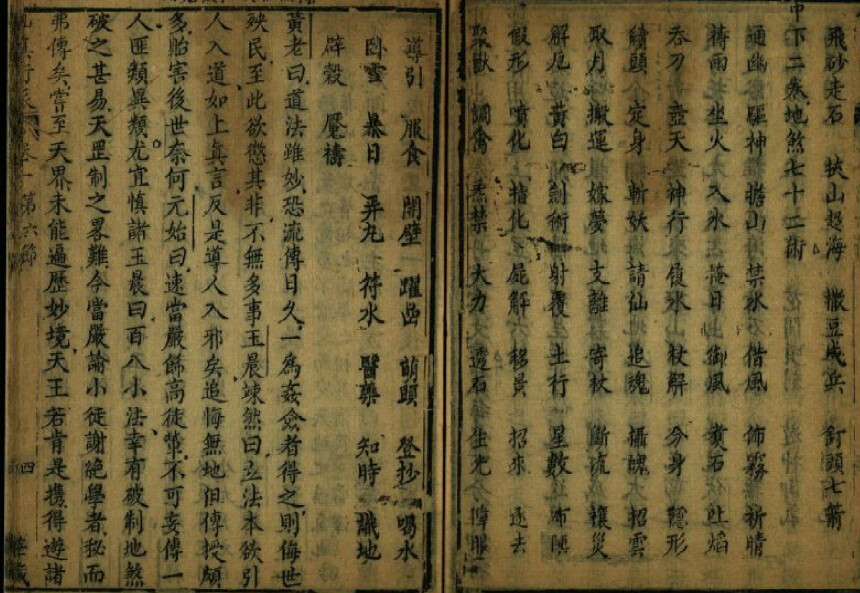 飛砂走石 挾山超海 撒豆成兵 釘頭七箭
中下二卷地煞七十二術
通幽 驅神 擔山 禁水 借風 佈霧 祈晴
禱雨 坐火 入水 掩日 御風 煑石 吐焰
吞刀 壺天 神行 履水 杖解 分身 隱形
續頭 定身 斬妖 請仙 追魂 攝魄 招雲
取月 搬運 嫁夢 支離 寄杖 斷流 禳災
解厄 黃白 劍術 射覆 土行 星數 布陣
假形 噴化 指化 屍解 移景 招來 逐去
聚獸 調禽 炁禁 大力 透石 生光 障服
導引 服食 開壁 躍岩 萌頭 登抄 喝水
臥雪 暴日 弄丸 符水 醫藥 知時 識地
辟穀 魘禱
黃老曰道法雖妙恐流傳日久一爲姦僉者得之則侮世
殃民至此欲懲其非不無多事玉晨竦然曰立法本欲引
人入道如上眞言反是導人入邪矣追悔無地但傳授頗
多貽害後世奈何元始曰速當嚴飾高徒輩不可妄傳一
人匪類異類尤宜慎諸玉晨曰百八小法幸有破制地煞
破之甚易天罡制之畧難今當嚴諭小徒謝絶學者秘而
弗傳矣嘗至天界未能遍歷妙境天王若肯是攜得遊諸
卷一第六節
四